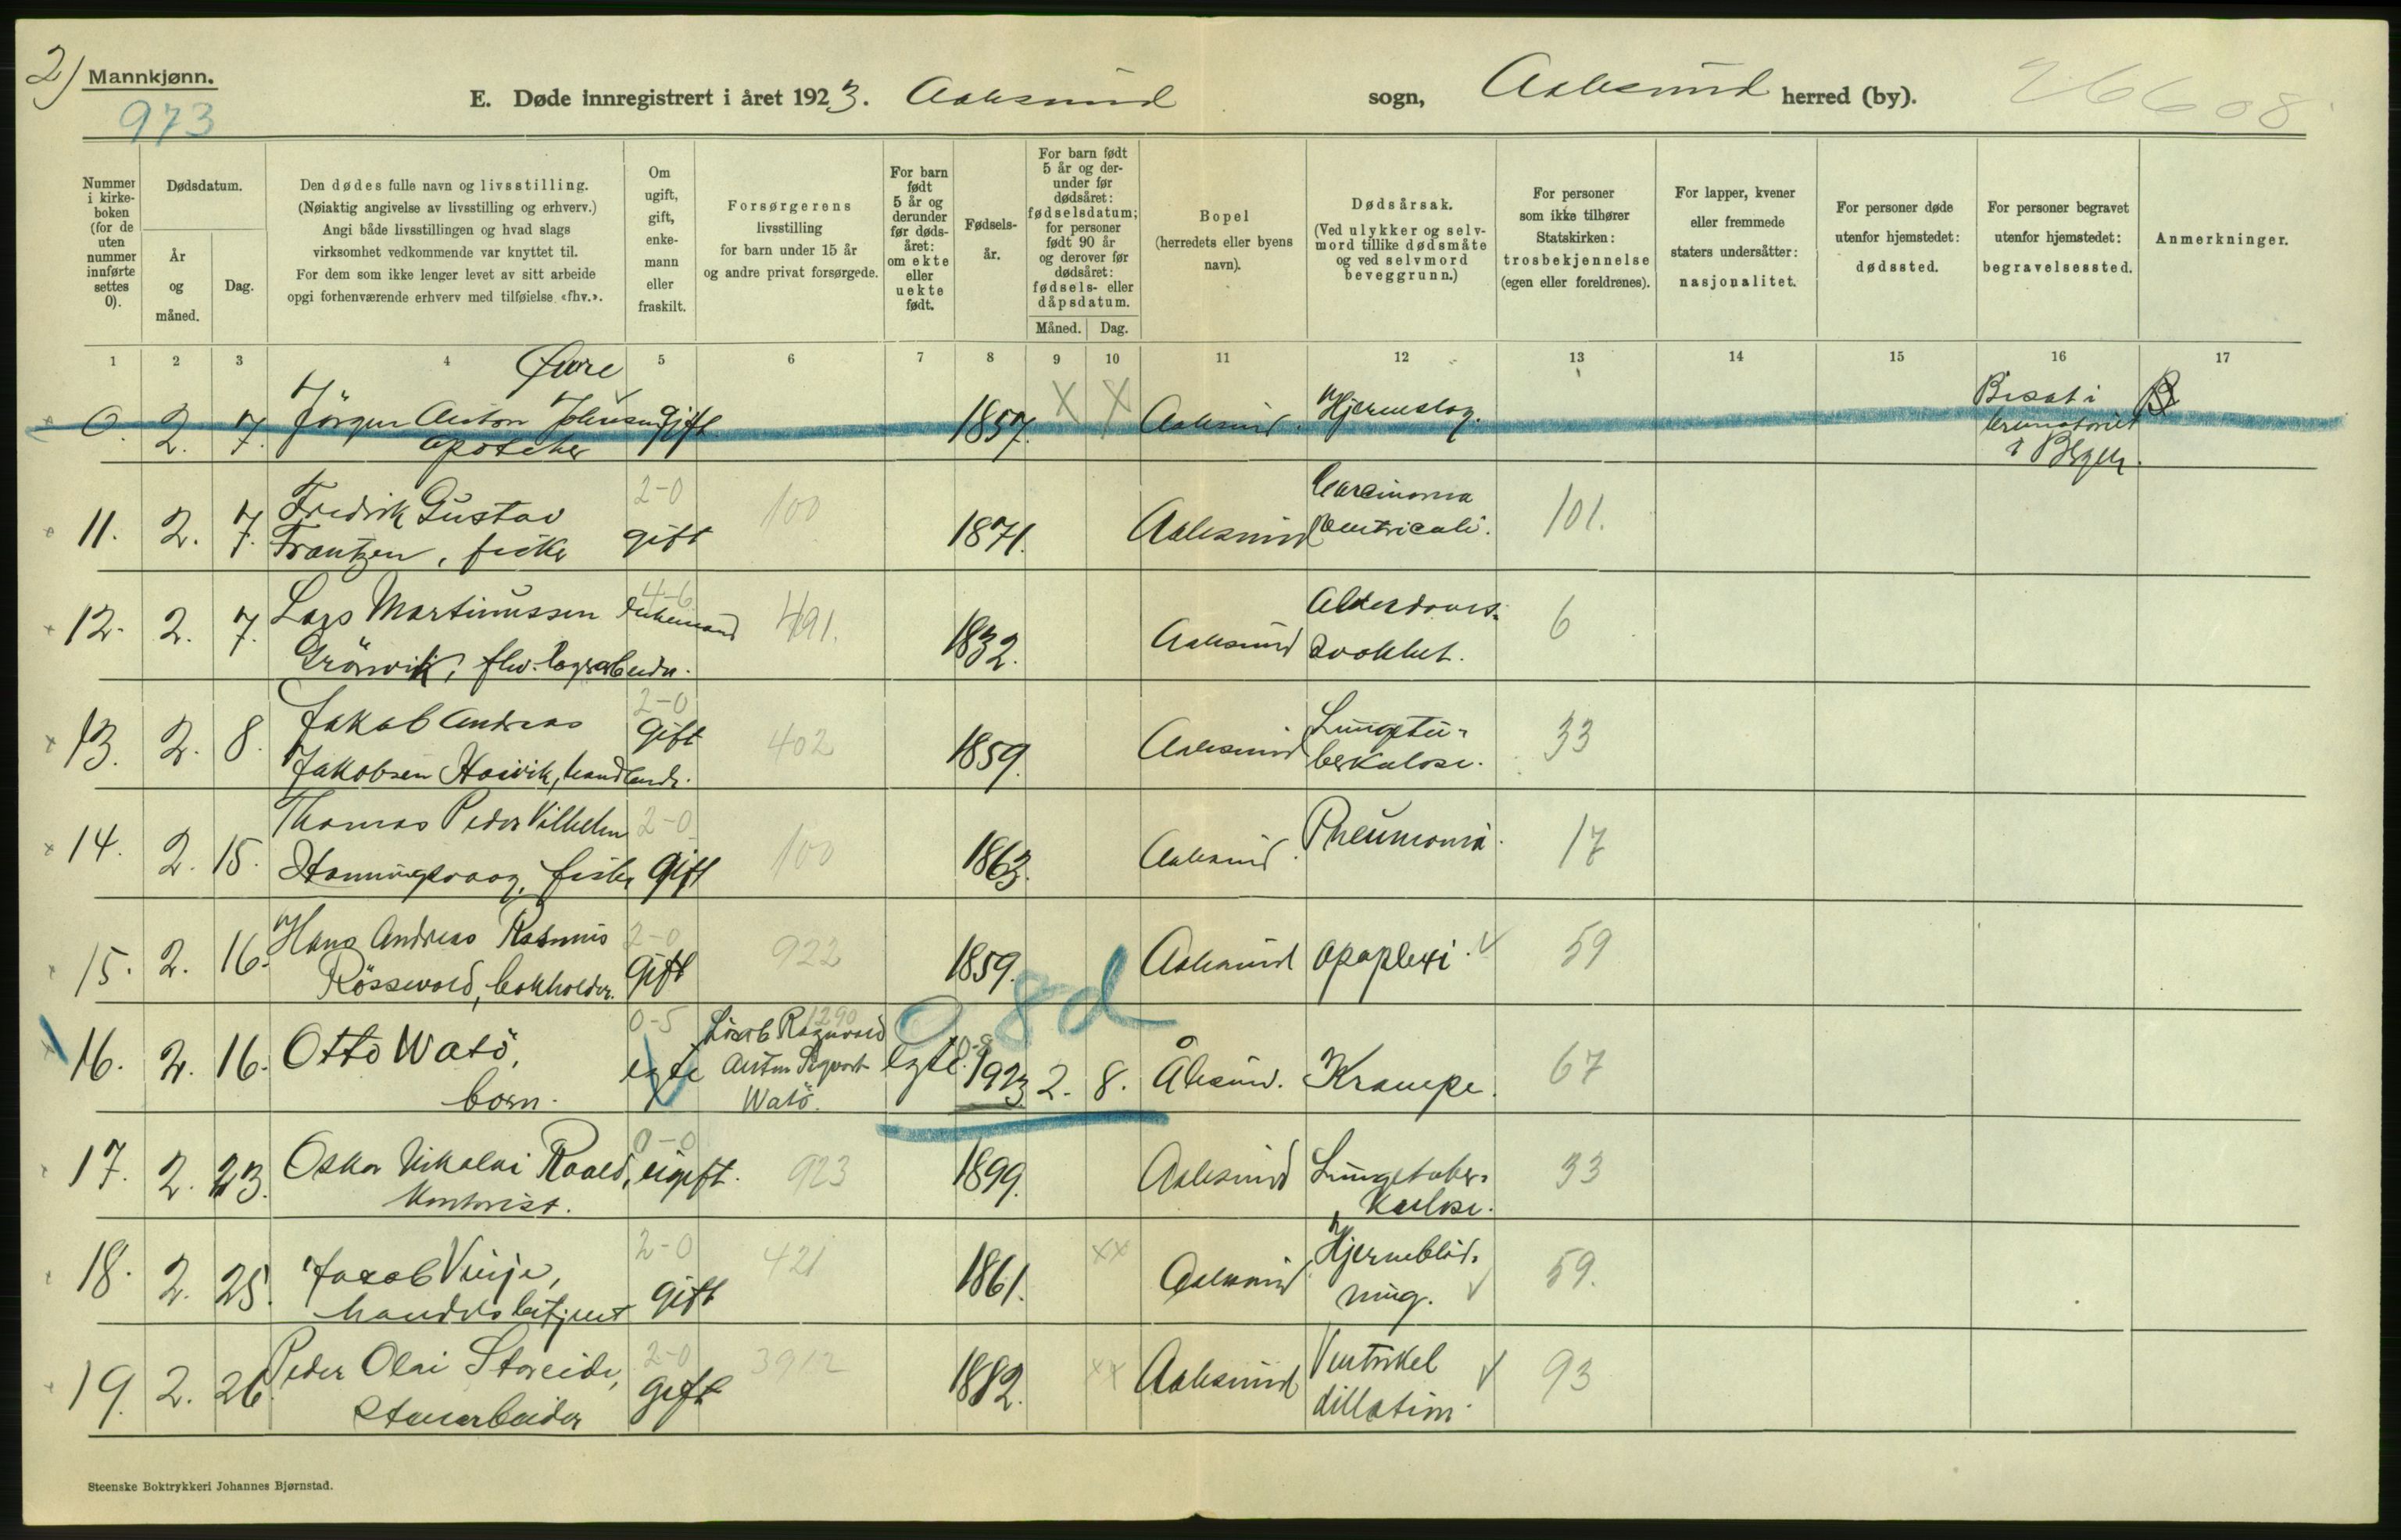 2) Mannkjønn.
973
E. Døde innregistrert i året 1923. Aalesund sogn, Aalesund herred (by). 26608
Nummer i kirke- boken (for de uten nummer innførte settes 0).
Dødsdatum.
År og måned.
Dag.
Den dødes fulle navn og livsstilling.
(Nøiaktig angivelse av livsstilling og erhverv.)
Angi både livsstillingen og hvad slags
virksomhet vedkommende var knyttet til.
For dem som ikke lenger levet av sitt arbeide
opgi forhenværende erhverv med tilføielse «fhv.».
Om ugift, gift, enke- mann eller fraskilt.
Forsørgerens
livsstilling
for barn under 15 år
og andre privat forsørgede.
For barn født 5 år og derunder før døds- året: om ekte eller uekte født.
Fødsels- år.
For barn født 5 år og der- under før dødsåret: fødselsdatum; for personer født 90 år og derover før dødsåret: fødsels- eller dåpsdatum.
Måned. Dag.
Bopel
(herredets eller byens
navn).
Dødsårsak.
(Ved ulykker og selv-
mord tillike dødsmåte
og ved selvmord
beveggrunn.)
For personer
som ikke tilhører
Statskirken:
trosbekjennelse
(egen eller foreldrenes).
For lapper, kvener
eller fremmede
staters undersåtter:
nasjonalitet.
For personer døde
utenfor hjemstedet:
dødssted.
For personer begravet
utenfor hjemstedet:
begravelsessted.
Anmerkninger.
1 2 3 4 5 6 7 8 9 10 11 12 13 14 15 16 17
Øwre
0. 2. 7. Jørgen Anton Johnsen gift 1857. X X Aalesund. Hjerneslag. Bisat i B
apoteker krematoriet
i Bergen.
2-0 100 Carcinoma
11. 2. 7. Fredrik Gustav gift 1871. Aalesund ventriculi. 101.
Frantzen, fisker
4-6
12. 2. 7. Lars Martinussen Enkemand 491. 1832. Aalesund Alderdoms- 6
Grönvik, fhv. lagerarbeider. svakhet.
2-0
13. 2. 8. Jakob Andreas gift 402 1859. Aalesund Lungetu- 33
Jakobsen Hasvik, handlende. berkulose.
14. 2. 15. Thomas Peder Vilhelm 2-0 100 1863. Aalesund. Pneumonia. 17
Honningsvaag, fisker gift
15. 2. 16. Hans Andreas Rasmus 2-0 922 1859. Aalesund apoplexi. 59
Røssevold, bokholder. gift
8d
0-5 1290
16. 2. 16. Otto Watö, egte Jacob Ragnvald egte. 0-8 1923 2. 8. Ålesund. Krampe. 67
barn. Anton Sigvart
Watö.
0-0
17. 2. 23. Oskar Nikolai Roald, ugift. 923 1899. Aalesund Lungetuber- 33
kontorist. kulose.
2-0
18. 2. 25. Jacob Vinje, gift 421 1861. xx Aalesund Hjerneblöd- 59.
handelsbetjent ning.
2-0
19. 2. 26. Peder Olai Storeide, gift 3912 1882. xx Aalesund Ventrikel 93
dillation.
Steenske Boktrykkeri Johannes Bjørnstad.